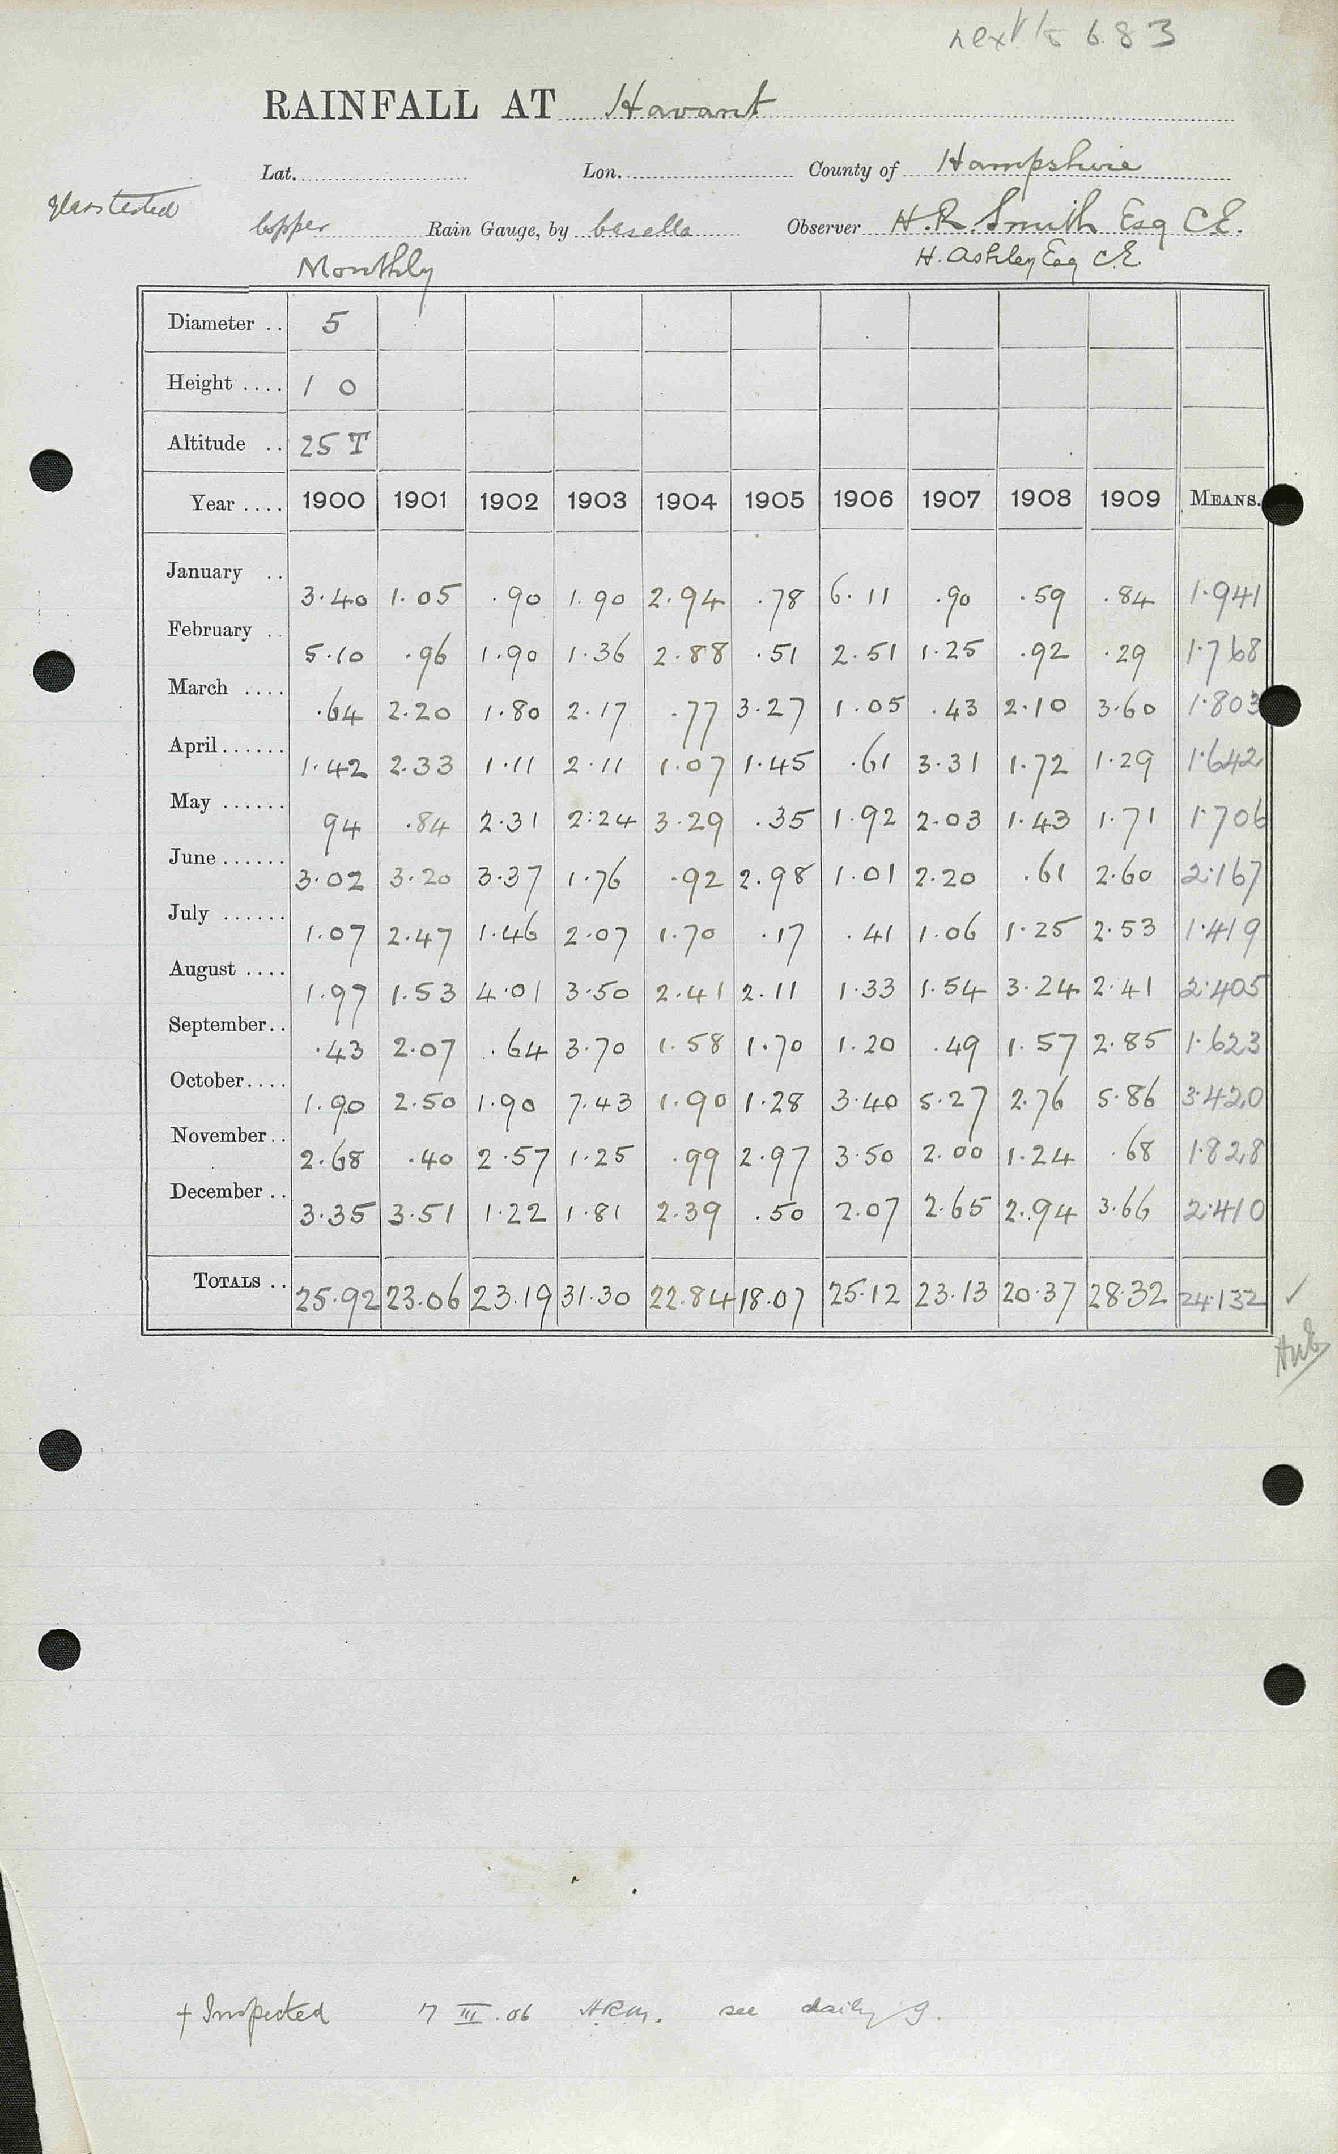 next to 683
RAINFALL AT Havant
Lat. Lon. County of Hampshire
Glass tested
Copper Rain Gauge, by Casella Observer H. R. Smith Esq C.E.
Monthly H. Ashley Esq C.E.
Diameter .. 5
Height .... 1 0
Altitude .. 25 T
Year .... 1900 1901 1902 1903 1904 1905 1906 1907 1908 1909 MEANS.
January .. 3.40 1.05 .90 1.90 2.94 .78 6.11 .90 .59 .84 1.941
February .. 5.10 .96 1.90 1.36 2.88 .51 2.51 1.25 .92 .29 1.768
March .... .64 2.20 1.80 2.17 .77 3.27 1.05 .43 2.10 3.60 1.803
April...... 1.42 2.33 1.11 2.11 1.07 1.45 .61 3.31 1.72 1.29 1.642
May ...... 94 .84 2.31 2.24 3.29 .35 1.92 2.03 1.43 1.71 1.706
June...... 3.02 3.20 3.37 1.76 .92 2.98 1.01 2.20 .61 2.60 2.167
July ...... 1.07 2.47 1.46 2.07 1.70 .17 .41 1.06 1.25 2.53 1.419
August .... 1.97 1.53 4.01 3.50 2.41 2.11 1.33 1.54 3.24 2.41 2.405
September.. .43 2.07 .64 3.70 1.58 1.70 1.20 .49 1.57 2.85 1.623
October.... 1.90 2.50 1.90 7.43 1.90 1.28 3.40 5.27 2.76 5.86 3.420
November.. 2.68 .40 2.57 1.25 .99 2.97 3.50 2.00 1.24 .68 1.828
December .. 3.35 3.51 1.22 1.81 2.39 .50 2.07 2.65 2.94 3.66 2.410
TOTALS .. 25.92 23.06 23.19 31.30 22.84 18.07 25.12 23.13 20.37 28.32 24.132 ✓
† Inspected 7 III .06 see daily g.